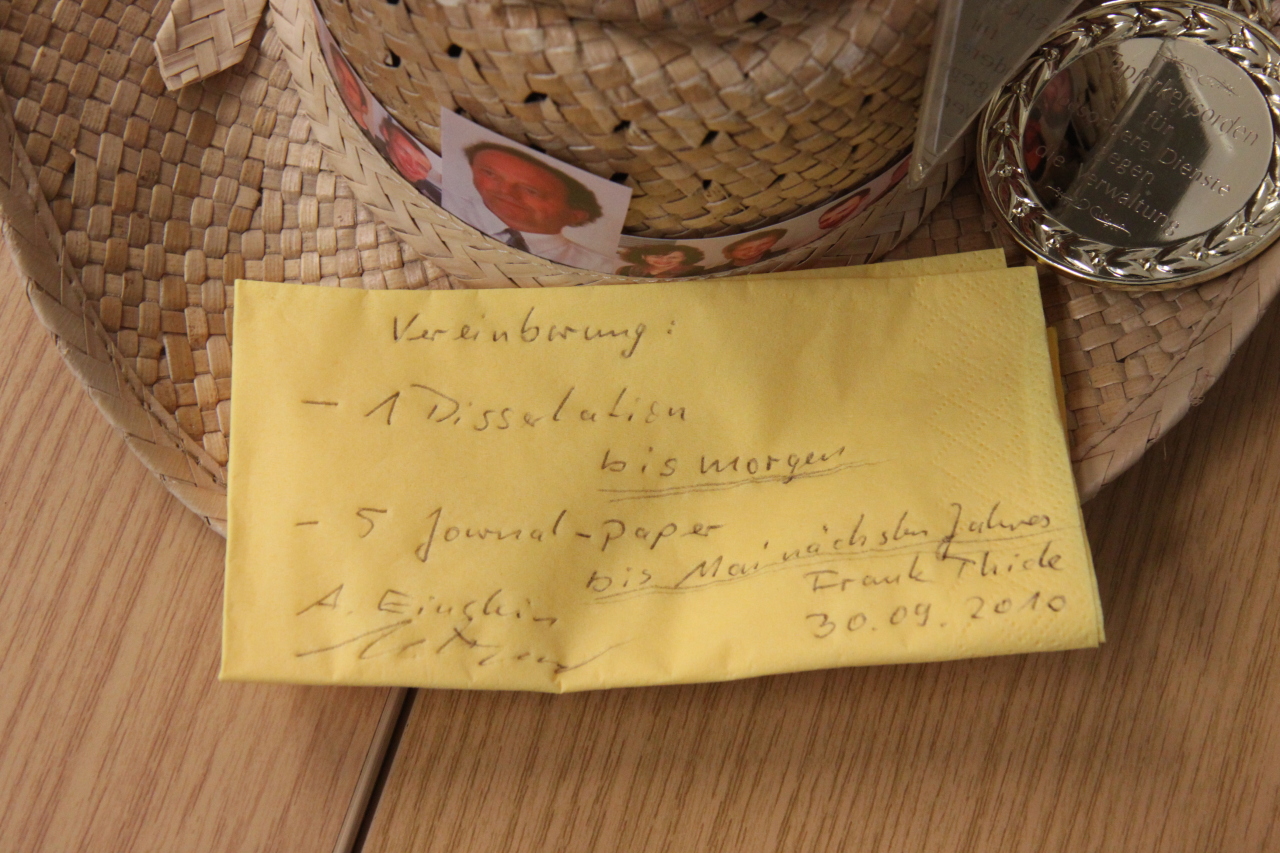 Tapferkeitsorden
für
besondere Dienste
gegen
die Verwaltung
Vereinbarung:
- 1 Dissertation
bis morgen
- 5 Journal-paper
bis Mai nächsten Jahres
A. Einstein
Frank Thiele
30.09.2010